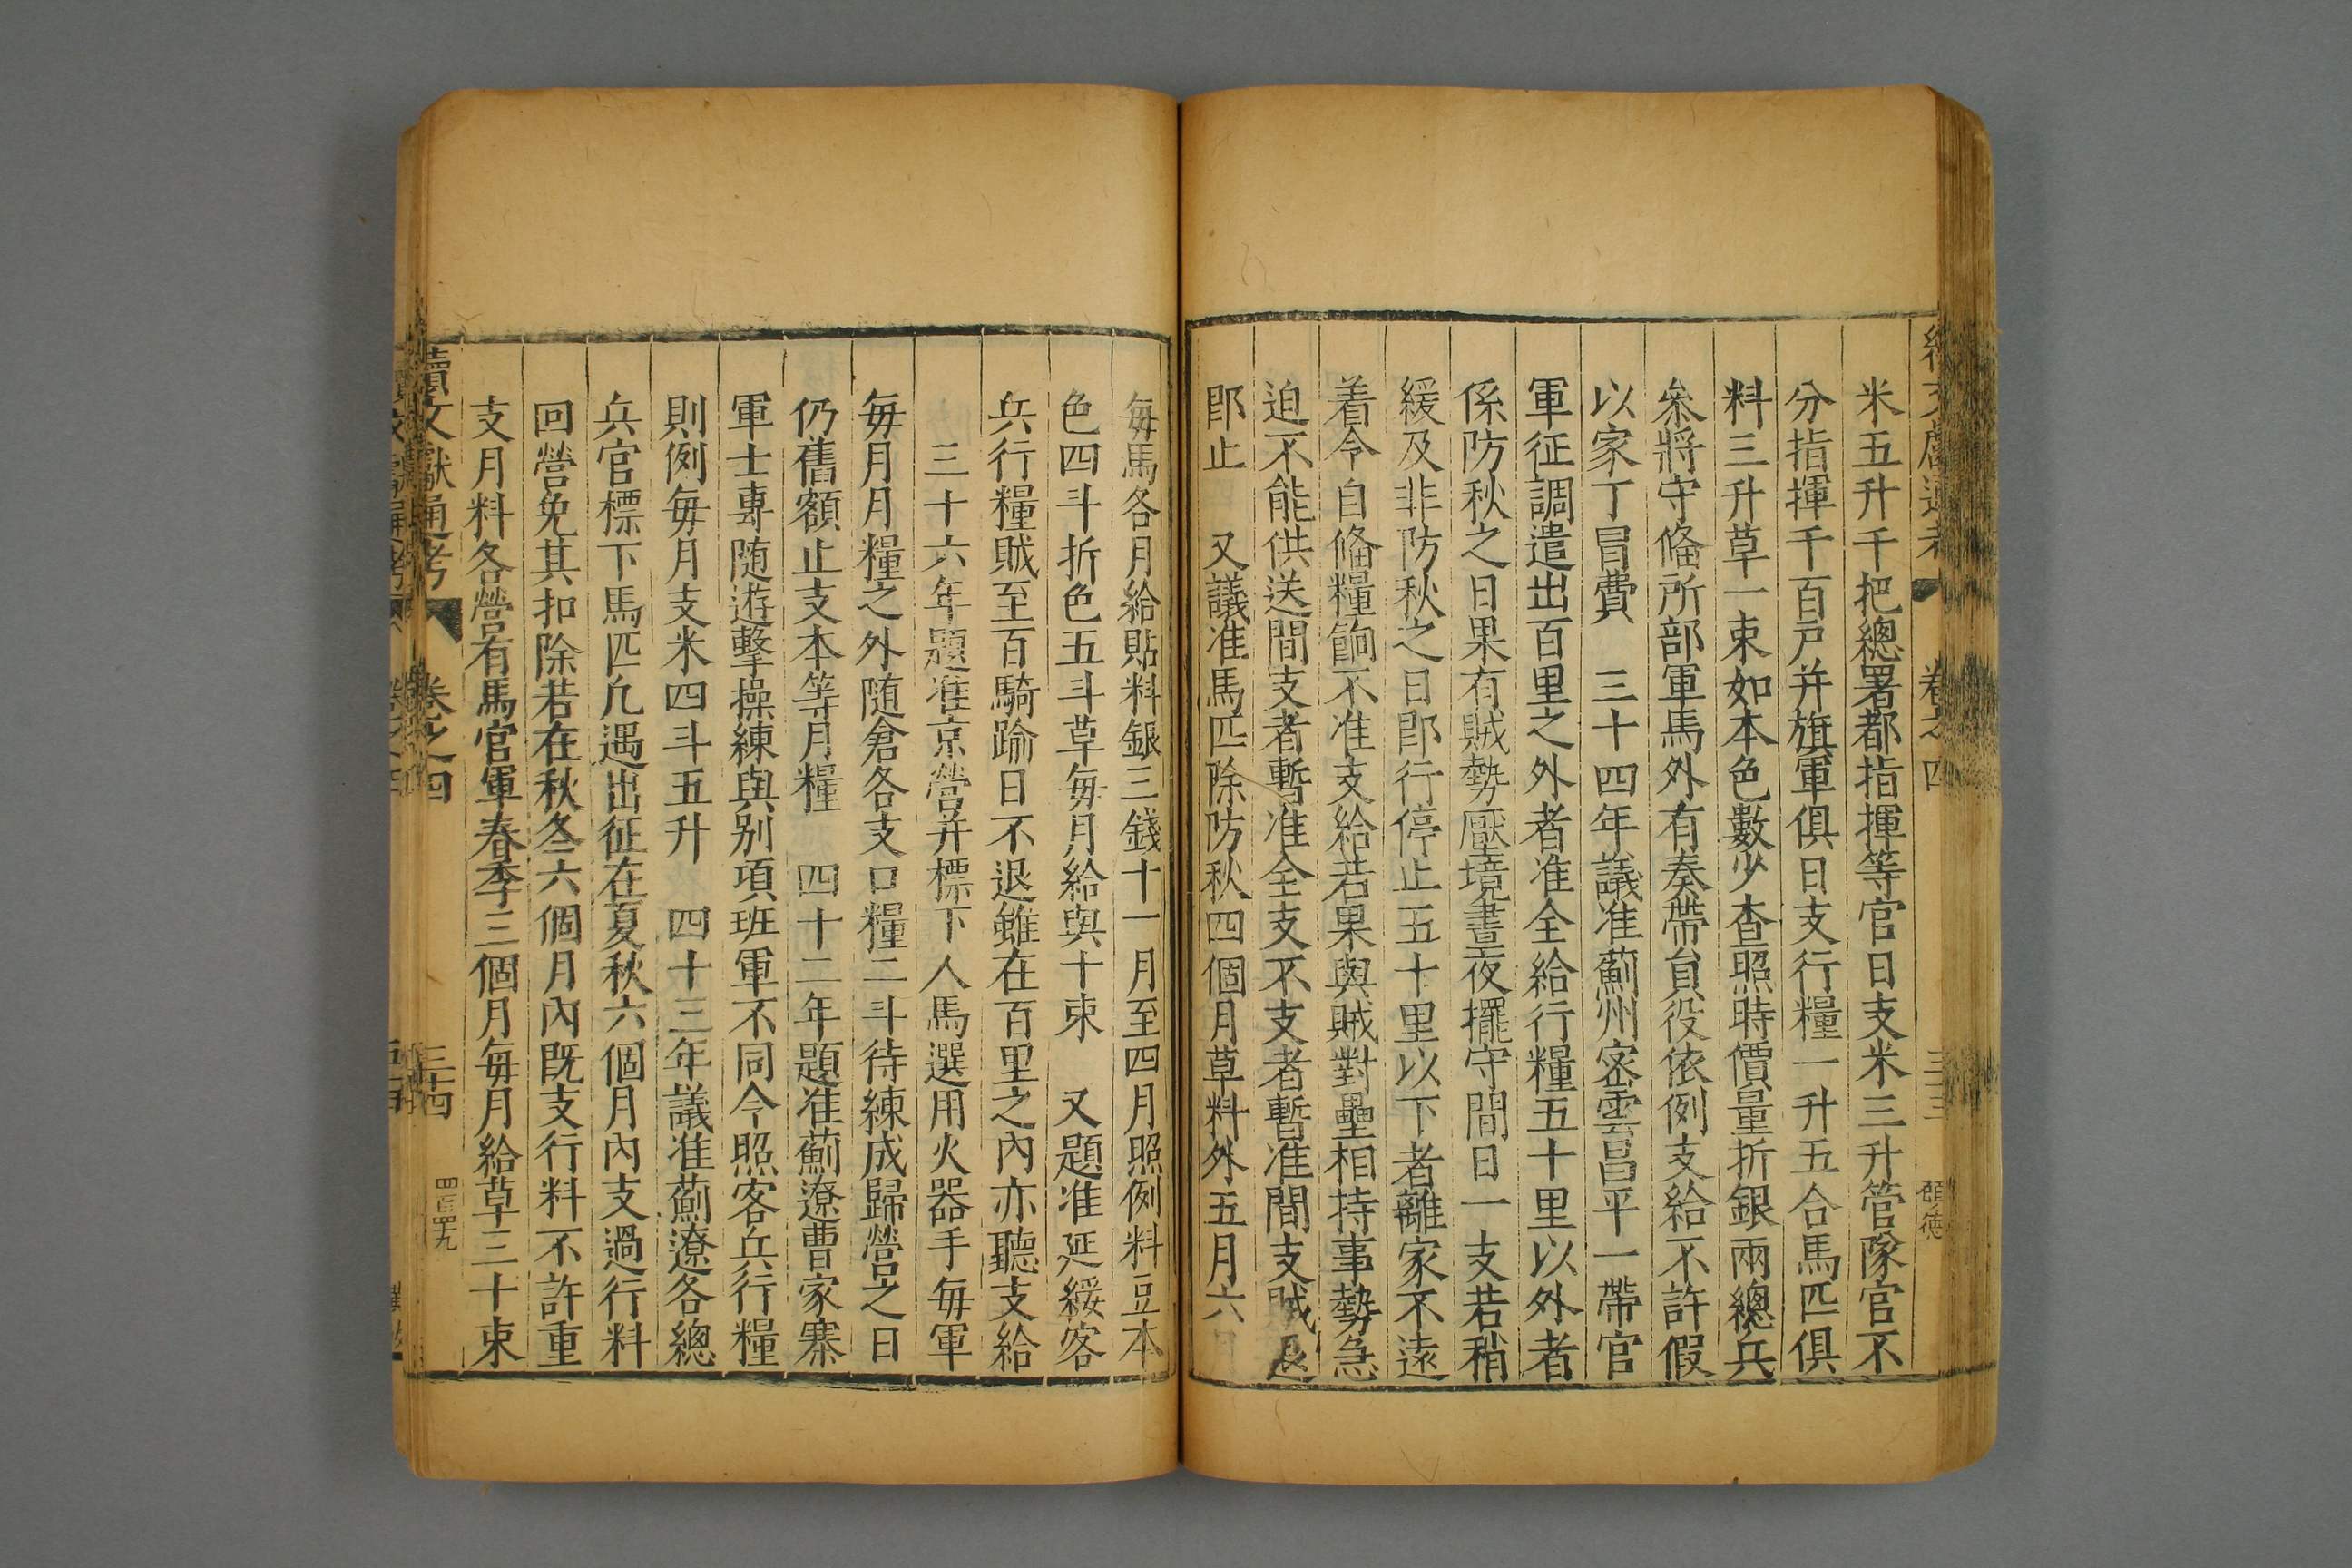 米五升千把總署都指揮等官日支米三升管隊官不
分指揮千百戸并旗軍俱日支行糧一升五合馬匹俱
料三升草一束如本色數少查照時價量折銀兩總兵
叅將守備所部軍馬外有奏帶貟役依例支給不許假
以家丁冒費 三十四年議准薊州宻雲昌平一帶官
軍征調遣出百里之外者准全給行糧五十里以外者
係防秋之日果有賊勢壓境晝夜擺守間日一支若稍
緩及非防秋之日即行停止五十里以下者離家不遠
着令自備糧餉不准支給若果與賊對壘相持事勢急
迫不能供送間支者暫准全支不支者暫准間支賊退
即止 又議准馬匹除防秋四個月草料外五月六
每馬各月給貼料銀三錢十一月至四月照例料豆本
色四斗折色五斗草每月給與十束 又題准延綏客
兵行糧賊至百騎踰日不退雖在百里之內亦聽支給
三十六年題准京營并標下人馬選用火器手每軍
每月月糧之外随倉各支口糧二斗待練成歸營之日
仍舊額止支本等月糧 四十二年題准薊遼曹家寨
軍士專随遊擊操練與别項班軍不同令照客兵行糧
則例每月支米四斗五升 四十三年議准薊遼各總
兵官標下馬匹凢遇出征在夏秋六個月內支過行料
回營免其扣除若在秋冬六個月內既支行料不許重
支月料各營有馬官軍春季三個月每月給草三十束
續文獻通考 卷之四 三十四